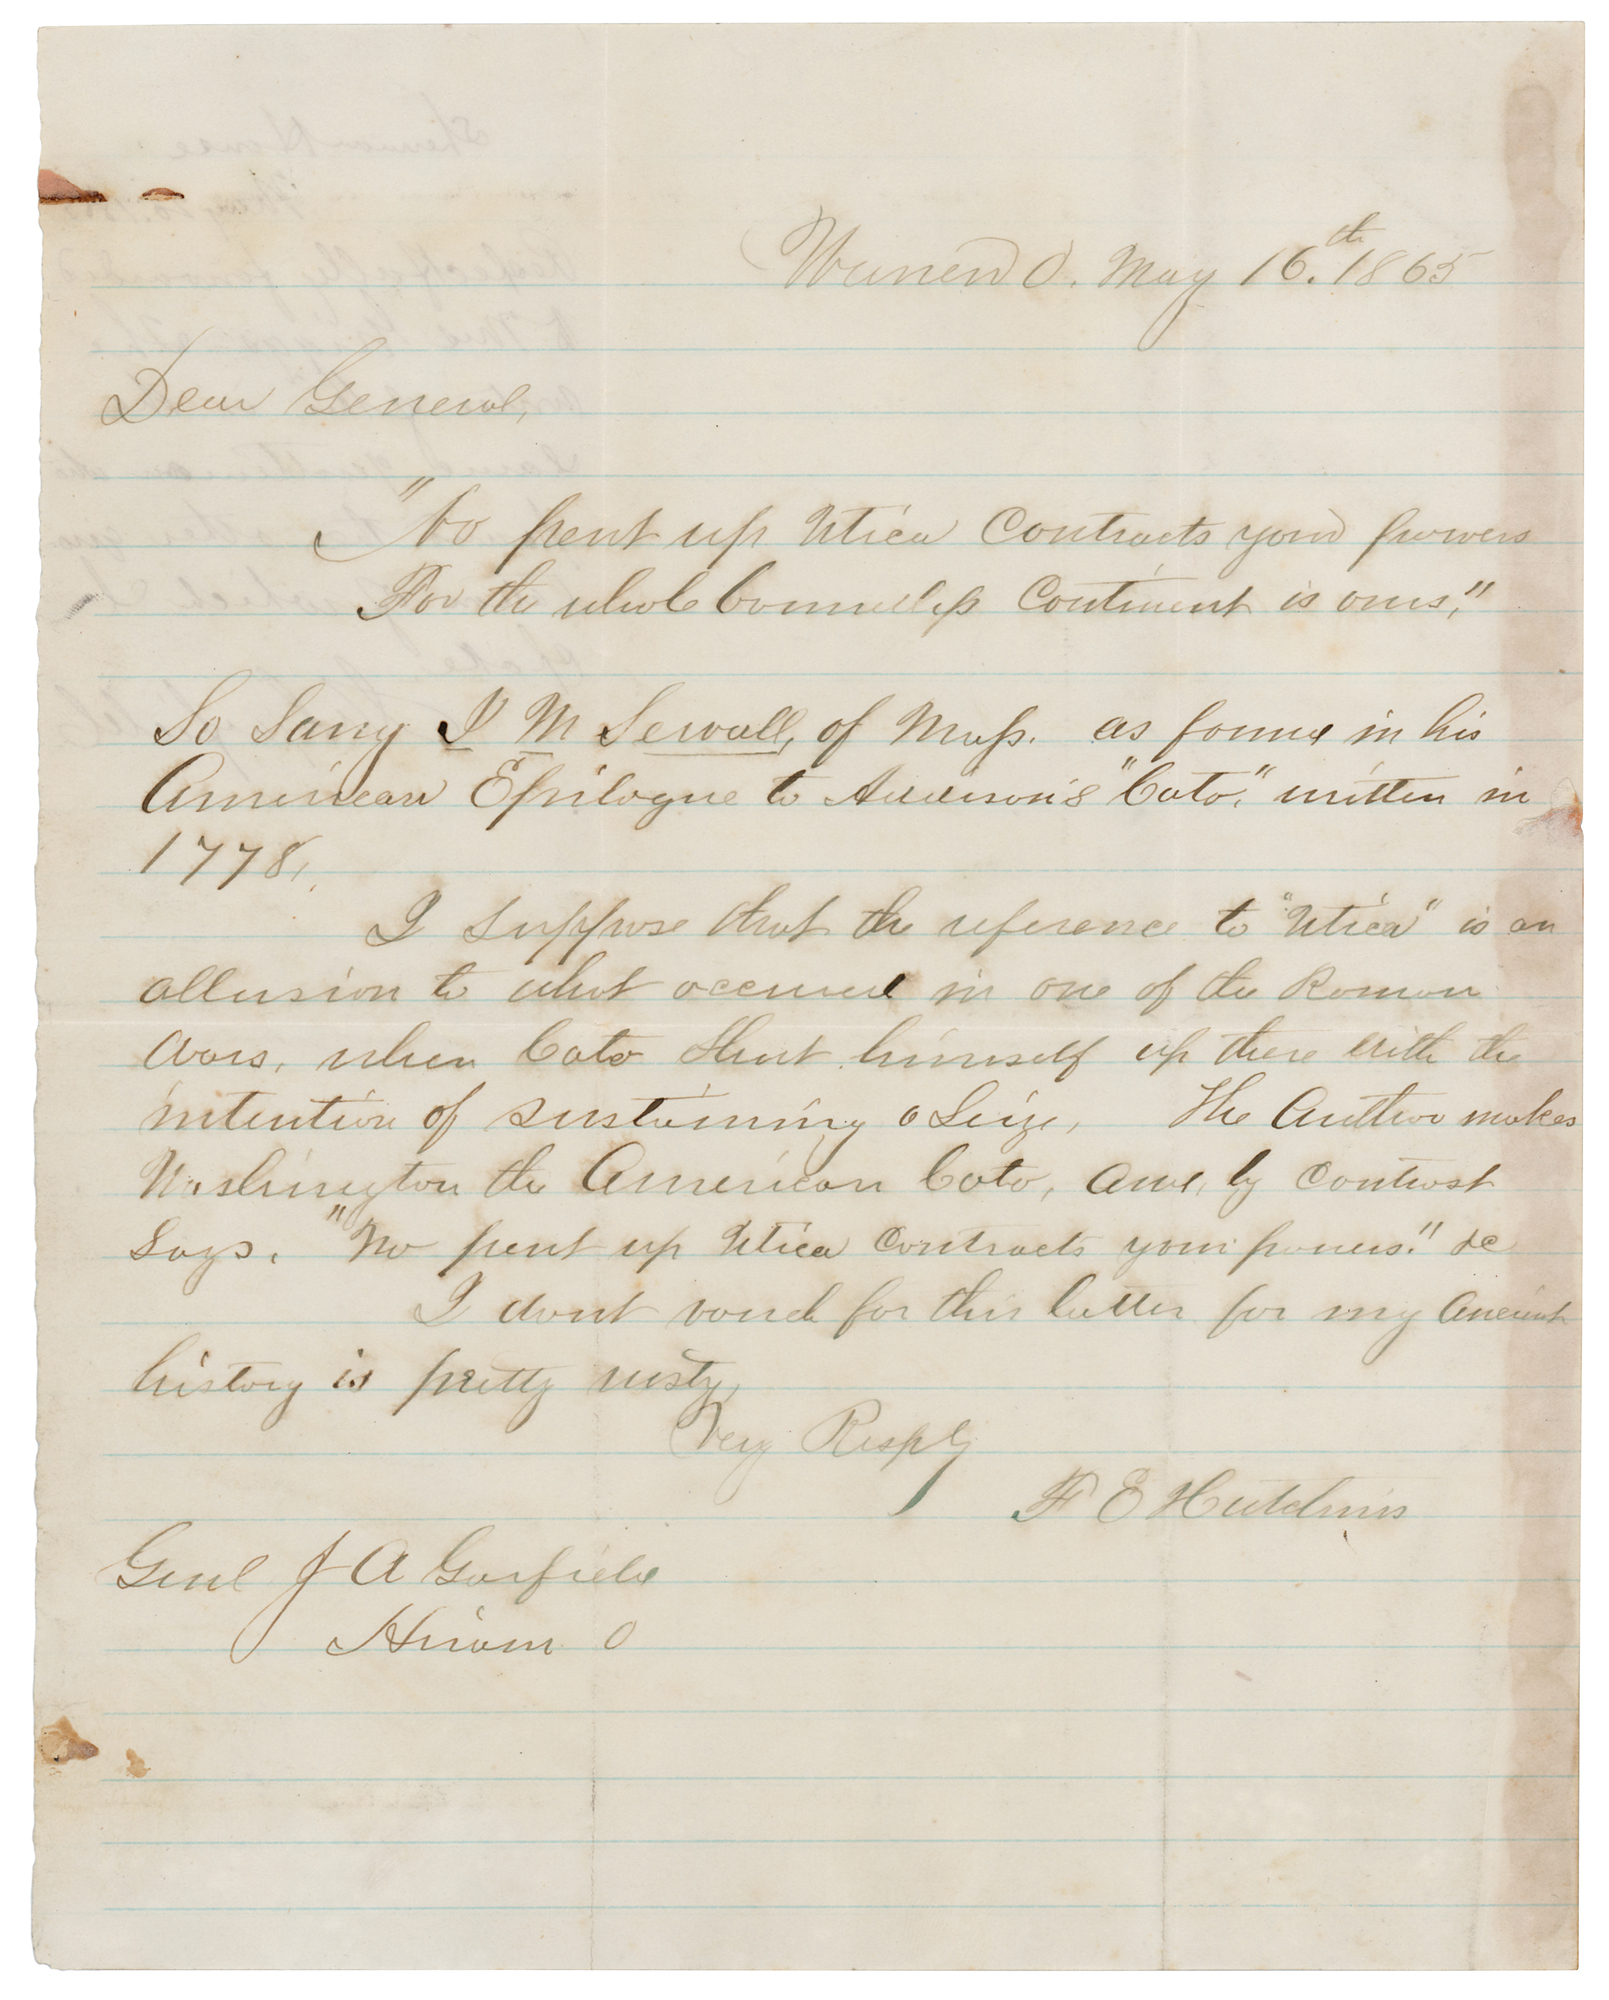 Warren O. May 16.th 1865
Dear General,
"No pent up Utica Contracts your powers
For the whole boundless Continent is ours,"
So Sang J M Sewall, of Mass. as found in his
American Epilogue to Addison's "Cato," written in
1778,
I suppose that the reference to "Utica" is an
allusion to what occurred in one of the Roman
Wars, when Cato Shut himself up there with the
intention of sustaining a Seige, The Author makes
Washington the American Cato, and, by contrast
Says, "No pent up Utica Contracts your powers." &c
I dont vouch for this latter for my Ancient
history is pretty rusty,
Very Resply
F E Hutchins
Genl J A Garfield
Hiram O